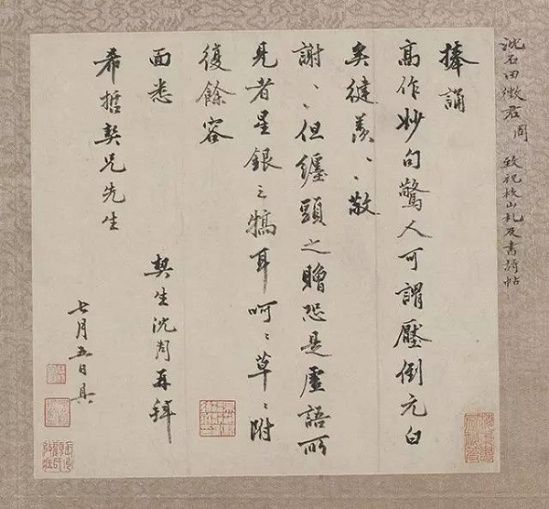 沈石田徵君周 致祝枝山札及書
捧誦
高作妙句驚人可謂壓倒元白
矣健羨、、敬
謝、、但纏頭之贈恐是虛語所
見者星銀之犒耳呵、、草、、附
復餘容
面悉
契生沈周再拜
希哲契兄先生
七月五日具